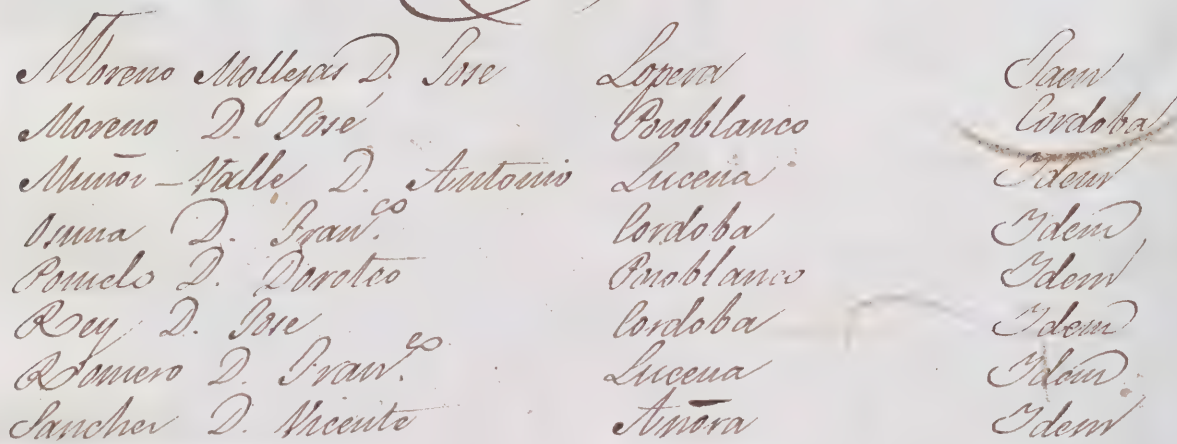 Moreno Mollejas D. Jose Lopera Jaen
Moreno D. José Pozoblanco Cordoba
Muñoz-Valle D. Antonio Lucena Idem
Osuna D. Fran.co Cordoba Idem
Pomelo D. Doroteo Pozoblanco Idem
Rey D. Jose Cordoba Idem
Romero D. Fran.co Lucena Idem
Sanchez D. Vicente Añora Idem